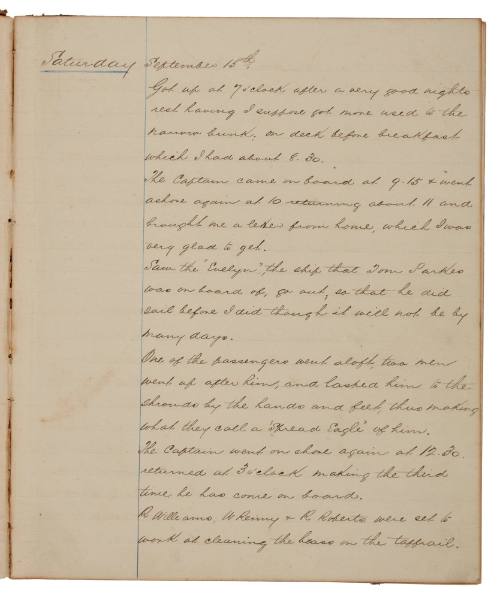 Saturday September 15th.
Got up at 7 o'clock after a very good nights
rest having I suppose got more used to the
narrow bunk. on deck before breakfast
which I had about 8.30.
The Captain came on board at 9.15 & went
ashore again at 10 returning about 11 and
brought me a letter from home, which I was
very glad to get.
Saw the "Evelyn", the ship that Tom Parkes
was on board of, go out, so that he did
sail before I did though it will not be by
many days.
One of the passengers went aloft, two men
went up after him, and lashed him to the
shrouds by the hands and feet, thus making
what they call a "Spread Eagle" of him.
The Captain went on shore again at 12.30.
returned at 3 o'clock making the third
time he has come on board.
R Williams, W Renny & R Roberts were set to
work at cleaning the brass on the taffrail.